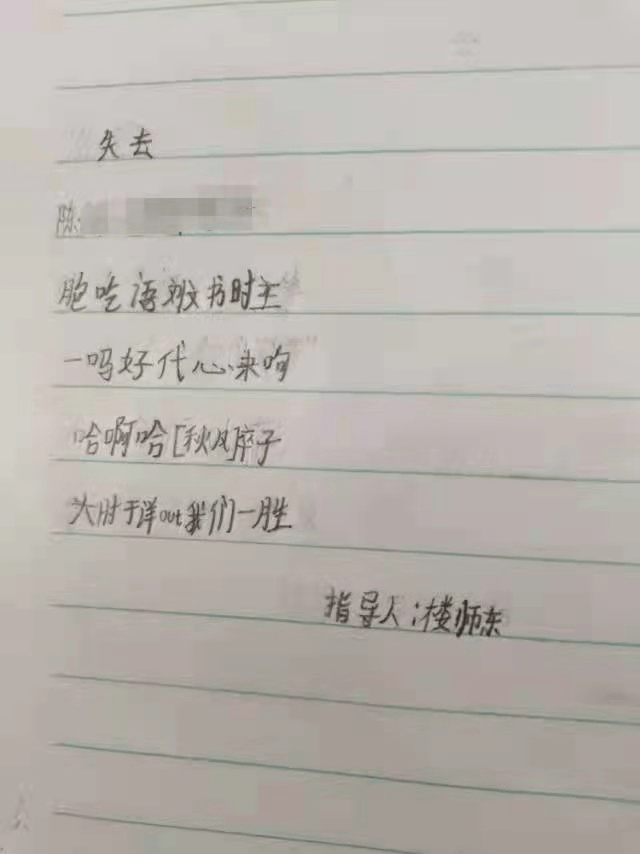 失去
陈:
胞吃语文书时主
一吗好代心来响
哈啊哈[秋风]卒子
大肘于详out我们一胜
指导人:楼师东